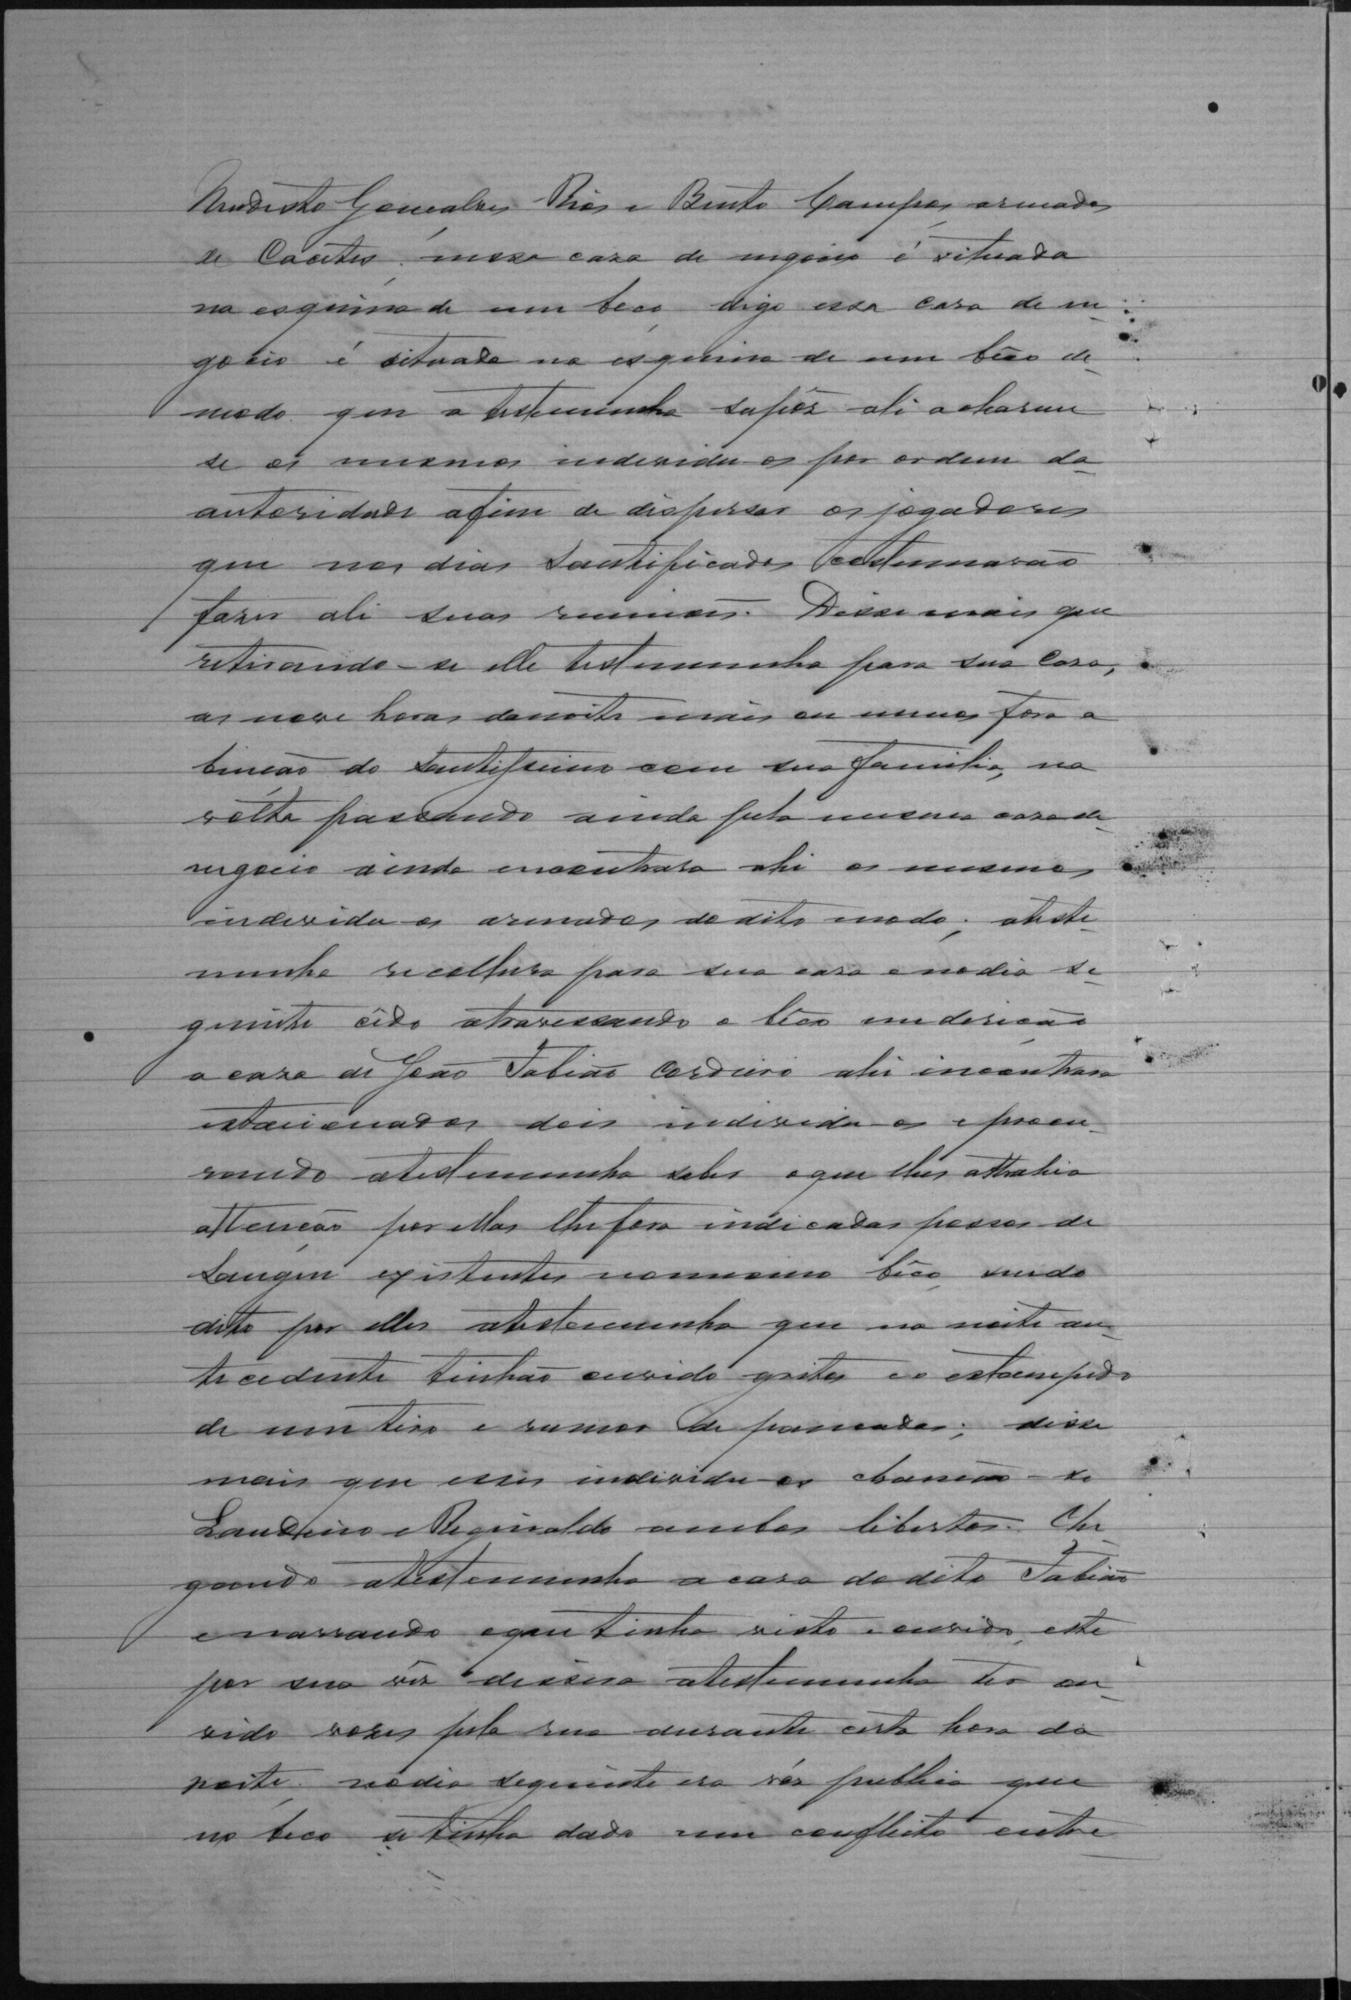 Modesto Gonçalves Rios e Bento Campos, armados
de Cacêtes; nessa caza de negocio é situada
na esquina de um beco, digo essa caza de ne-
gocio é situada na esquina de um bêco de-
modo que a testemunha supôz ali acharem
se os mesmos individuos por ordem da
autoridade afim de dispersar os jogadores
que nos dias Santificados costumavão
fazer ali suas reuniões. Disse mais que
retirando-se elle testemunha para sua Caza,
as nove horas danoite mais ou menos fora a
bençao do Santissimo com sua familia, na
volta passando ainda pela mesma caza de
negocio ainda encontrara ahi os mesmos
individuos armados do dito modo; a teste-
munha recolhera para sua caza e nodia se-
guinte cêdo atravessando o bêco em direção
a caza de João Fabião Cordeiro ahi encontrara
estacionados dois individuos e procu-
rando atestemunha saber oque lhes attrahia
attenção por elles lhe fora indicadas possas de
Sangue existentes nomesmo bêco, sendo
dito por elles atestemunha que na noite an-
tecedente tinhão ouvido gritos e o estampido
de um tiro e rumor de pancadas; disse
mais que esses individuos chamão-se
Laudino e Reginaldo ambos libertos. Che-
gando atestemunha a caza do dito Fabião
e narrando oque tinha visto e ouvido, este
por sua vêz dissera atestemunha ter ou-
vido vozes pela rua durante certa hora da
noite; nodia seguinte era vóz publica que
no beco se tinha dado um conflicto entre